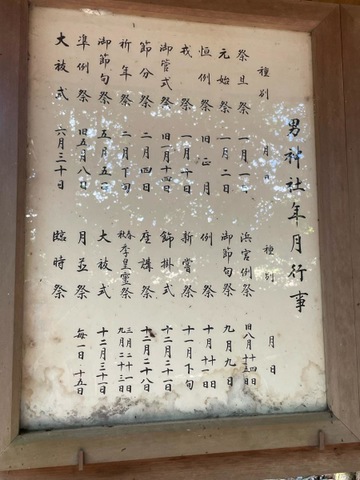 男神社年月行事
種別 月日
歳旦祭 一月一日
元始祭 一月二日
恒例祭 旧正月
戎祭 一月十日
御管式祭 旧一月十四日
節分祭 二月四日
祈年祭 二月下旬
御節句祭 五月五日
準例祭 旧五月八日
大祓式 六月三十日
種別 月日
浜宮例祭 旧八月十四日 十五日
御節句祭 九月九日
例祭 十月十日 十一日
新嘗祭 十一月下旬
飾掛式 十二月二十日
座講祭 十二月二十八
春秋季皇霊祭 三月二十一日 九月二十三日
大祓式 十二月三十一日
月並祭 毎一日・十五日
臨時祭